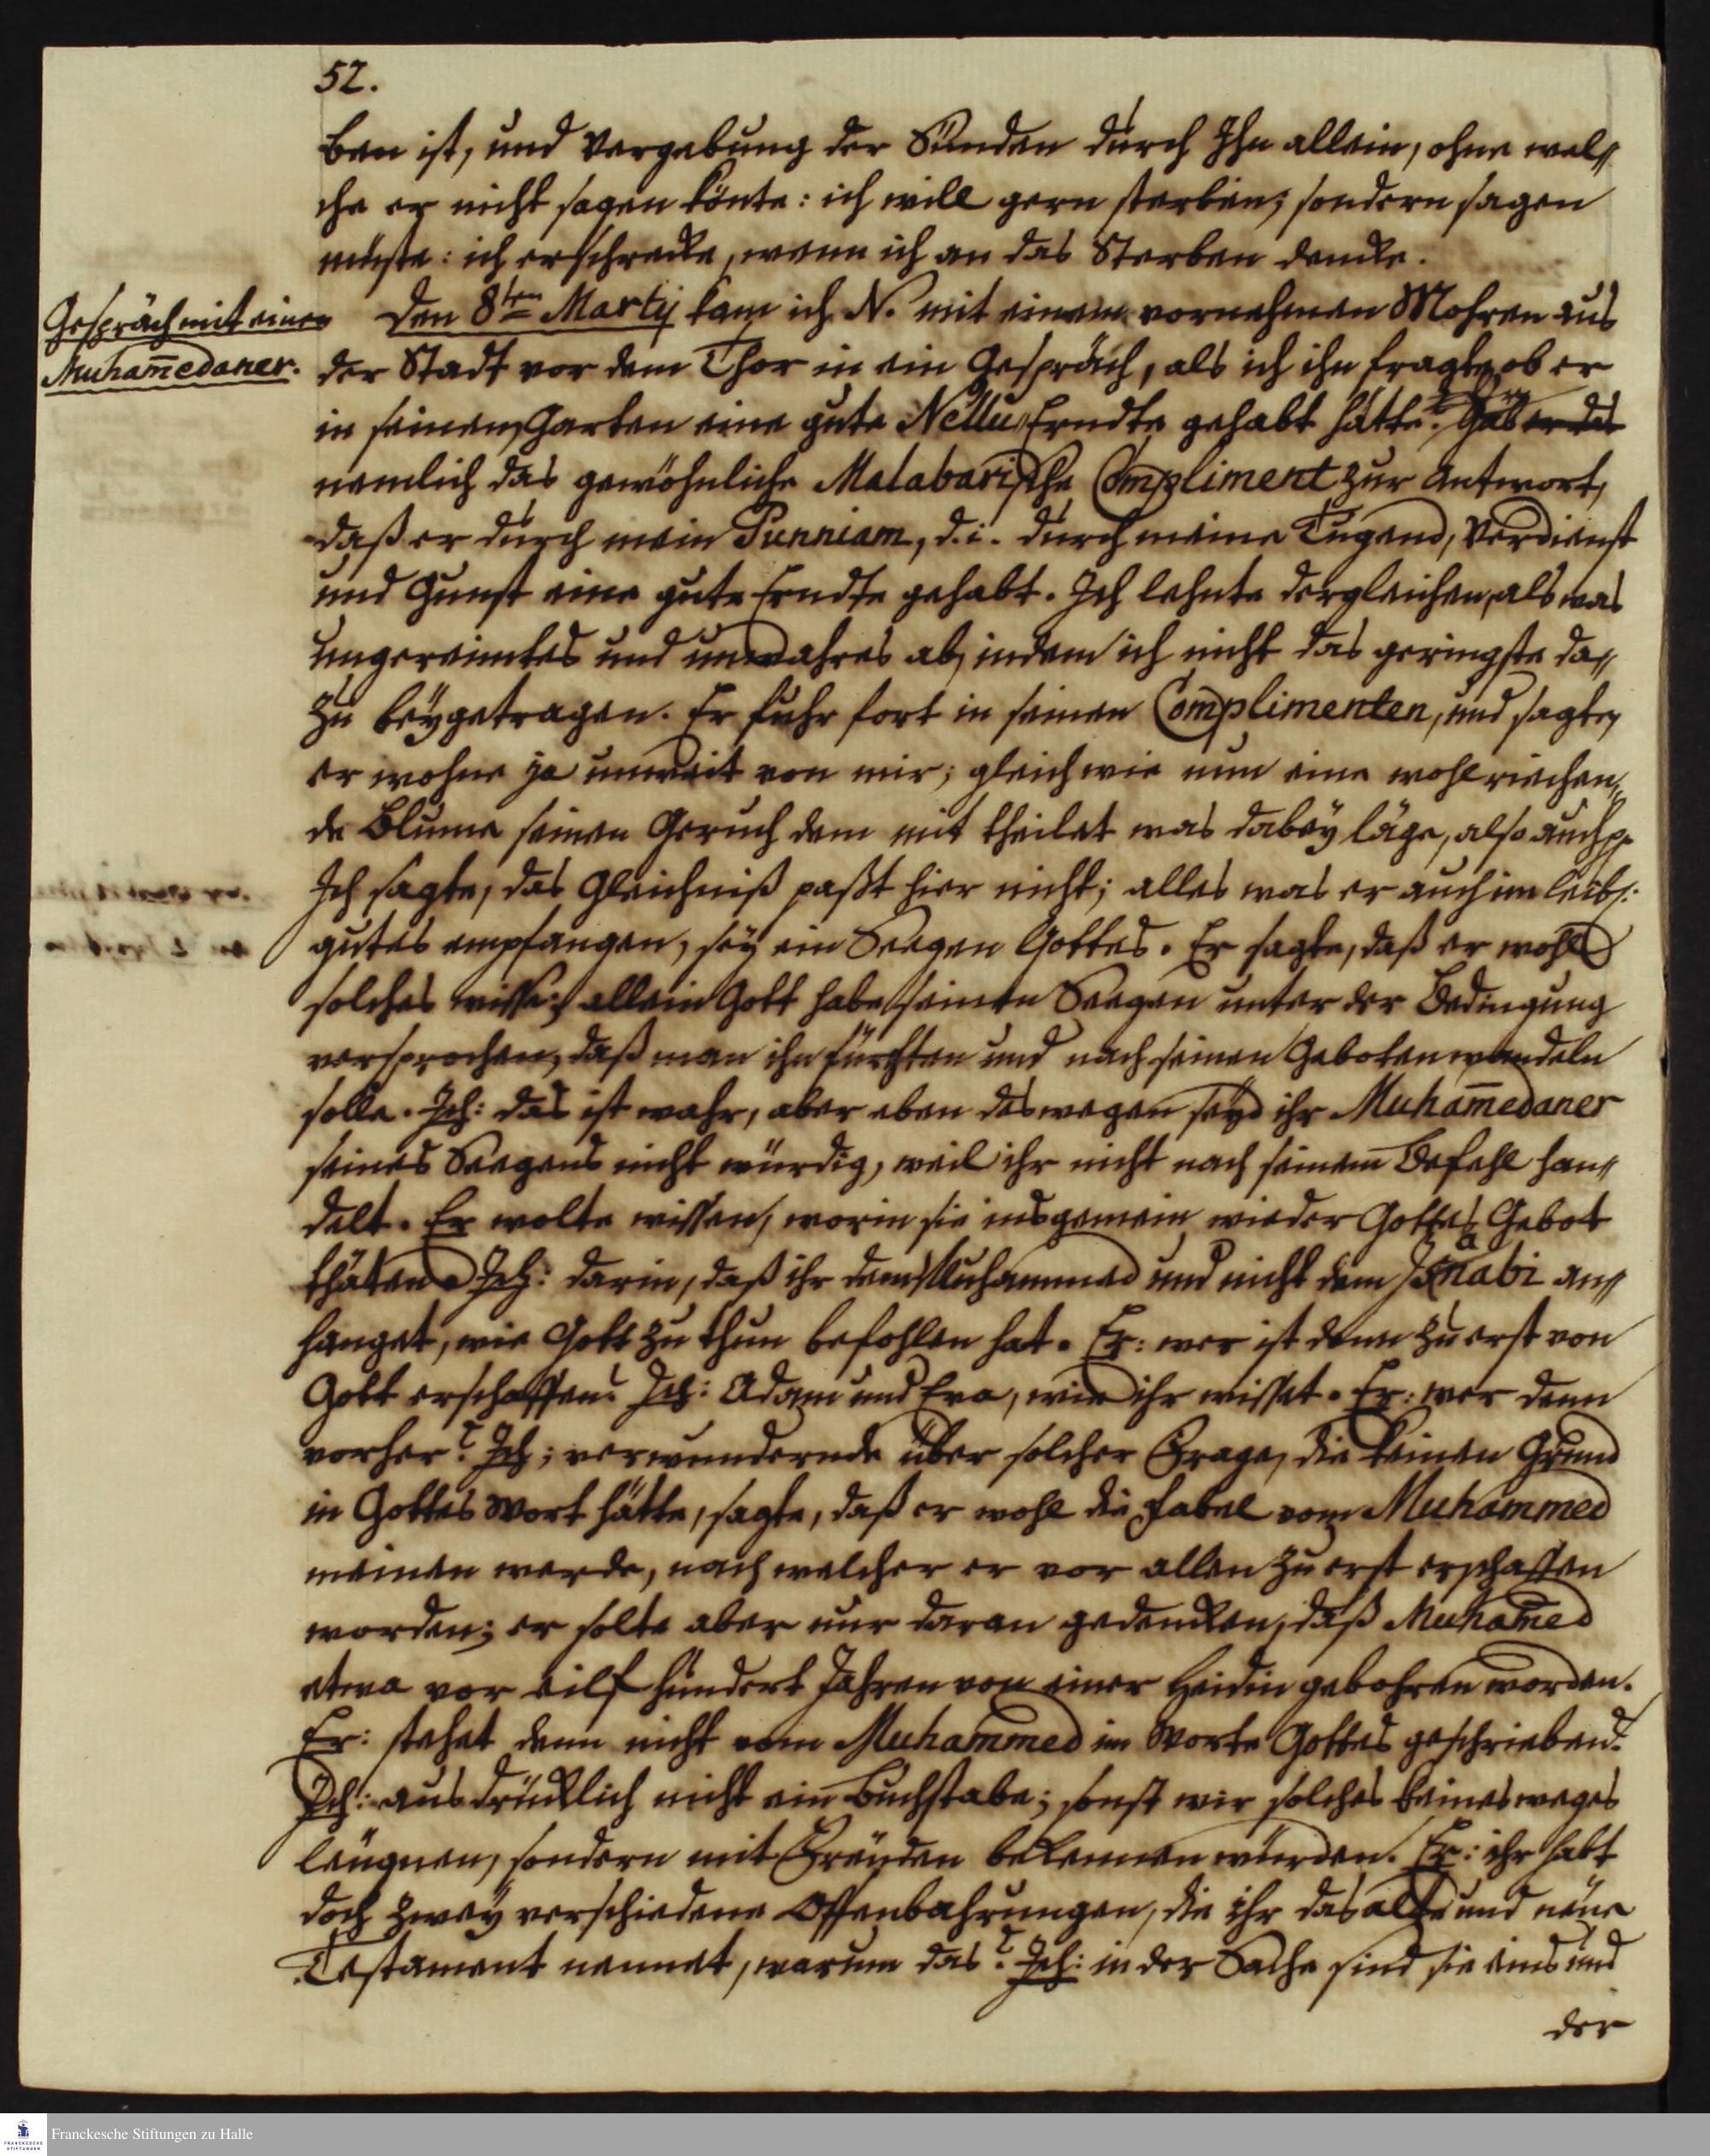 52.
ben ist, und Vergebung der Sünden durch Ihn allein, ohne wel„
che er nicht sagen könte: ich will gern sterben; sondern sagen
müste: ich erschrecke, wenn ich an das Sterben dencke.
Gespräch mit einem
Muham̅edaner.
Den 8ten Martij kam ich N. mit einem vornehmen Mohren aus
der Stadt vor dem Thor in ein Gespräch, als ich ihn fragte, ob er
in seinem Garten eine gute Nellu Erndte gehabt hätte. Gab er da
nemlich das gewöhnliche Malabarische Compliment zur Antwort,
daß er durch mein Punniam, d. i. durch meine Tugend, Verdienst
und Gunst eine gute Erndte gehabt. Ich lehnte dergleichen, als was
ungereimtes und unwahres ab, indem ich nicht das geringste da„
zu beygetragen. Er fuhr fort in seinen Complimenten, und sagte,
er wohne ja unweit von mir; gleich wie nun eine wohlriechen„
de Blume seinen Geruch dem mit theilet was dabey läge, also auch pp.
Ich sagte, das Gleichniß paßt hier nicht; alles was er auch im leibl:
gutes empfangen, sey ein Seegen Gottes. Er sagte, daß er wohl
solches wisse; allein Gott habe seinen Seegen unter der Bedingung
versprochen, daß man ihn fürchten und nach seinen Geboten wandeln
solle. Ich: das ist wahr, aber eben deswegen seyd ihr Muham̅edaner
seines Seegens nicht würdig, weil ihr nicht nach seinem Befehl han„
delt. Er wolte wissen, worin sie insgemein wieder Gottes Gebot
thäten. Ich: darin, daß ihr dem Muhammed und nicht dem Isanabi an„
hanget, wie Gott zu thun befohlen hat. Er: wer ist denn zu erst von
Gott erschaffen? Ich: Adam und Eva, wie ihr wisset. Er: wer denn
vorher? Ich; verwundernde über solcher Frage, die keinen Grund
in Gottes Wort hätte, sagte, daß er wohl die Fabel vom Muhammed
meinen werde, nach welcher er vor allen zu erst erschaffen
worden; er solte aber nur daran gedencken, daß Muham̅ed
etwa vor eilf hundert Jahren von einer Heidin gebohren worden.
Er: stehet denn nicht vom Muhammed im Worte Gottes geschrieben?
Ich: ausdrücklich nicht ein Buchstabe; sonst wir solches keinesweges
leügnen, sondern mit Freüden bekennen würden. Er: ihr habt
doch zwey verschiedene Offenbahrungen, die ihr das alte und neüe
Testament nennet, warum das? Ich: in der Sache sind sie eins und
der
Franckesche Stiftungen zu Halle